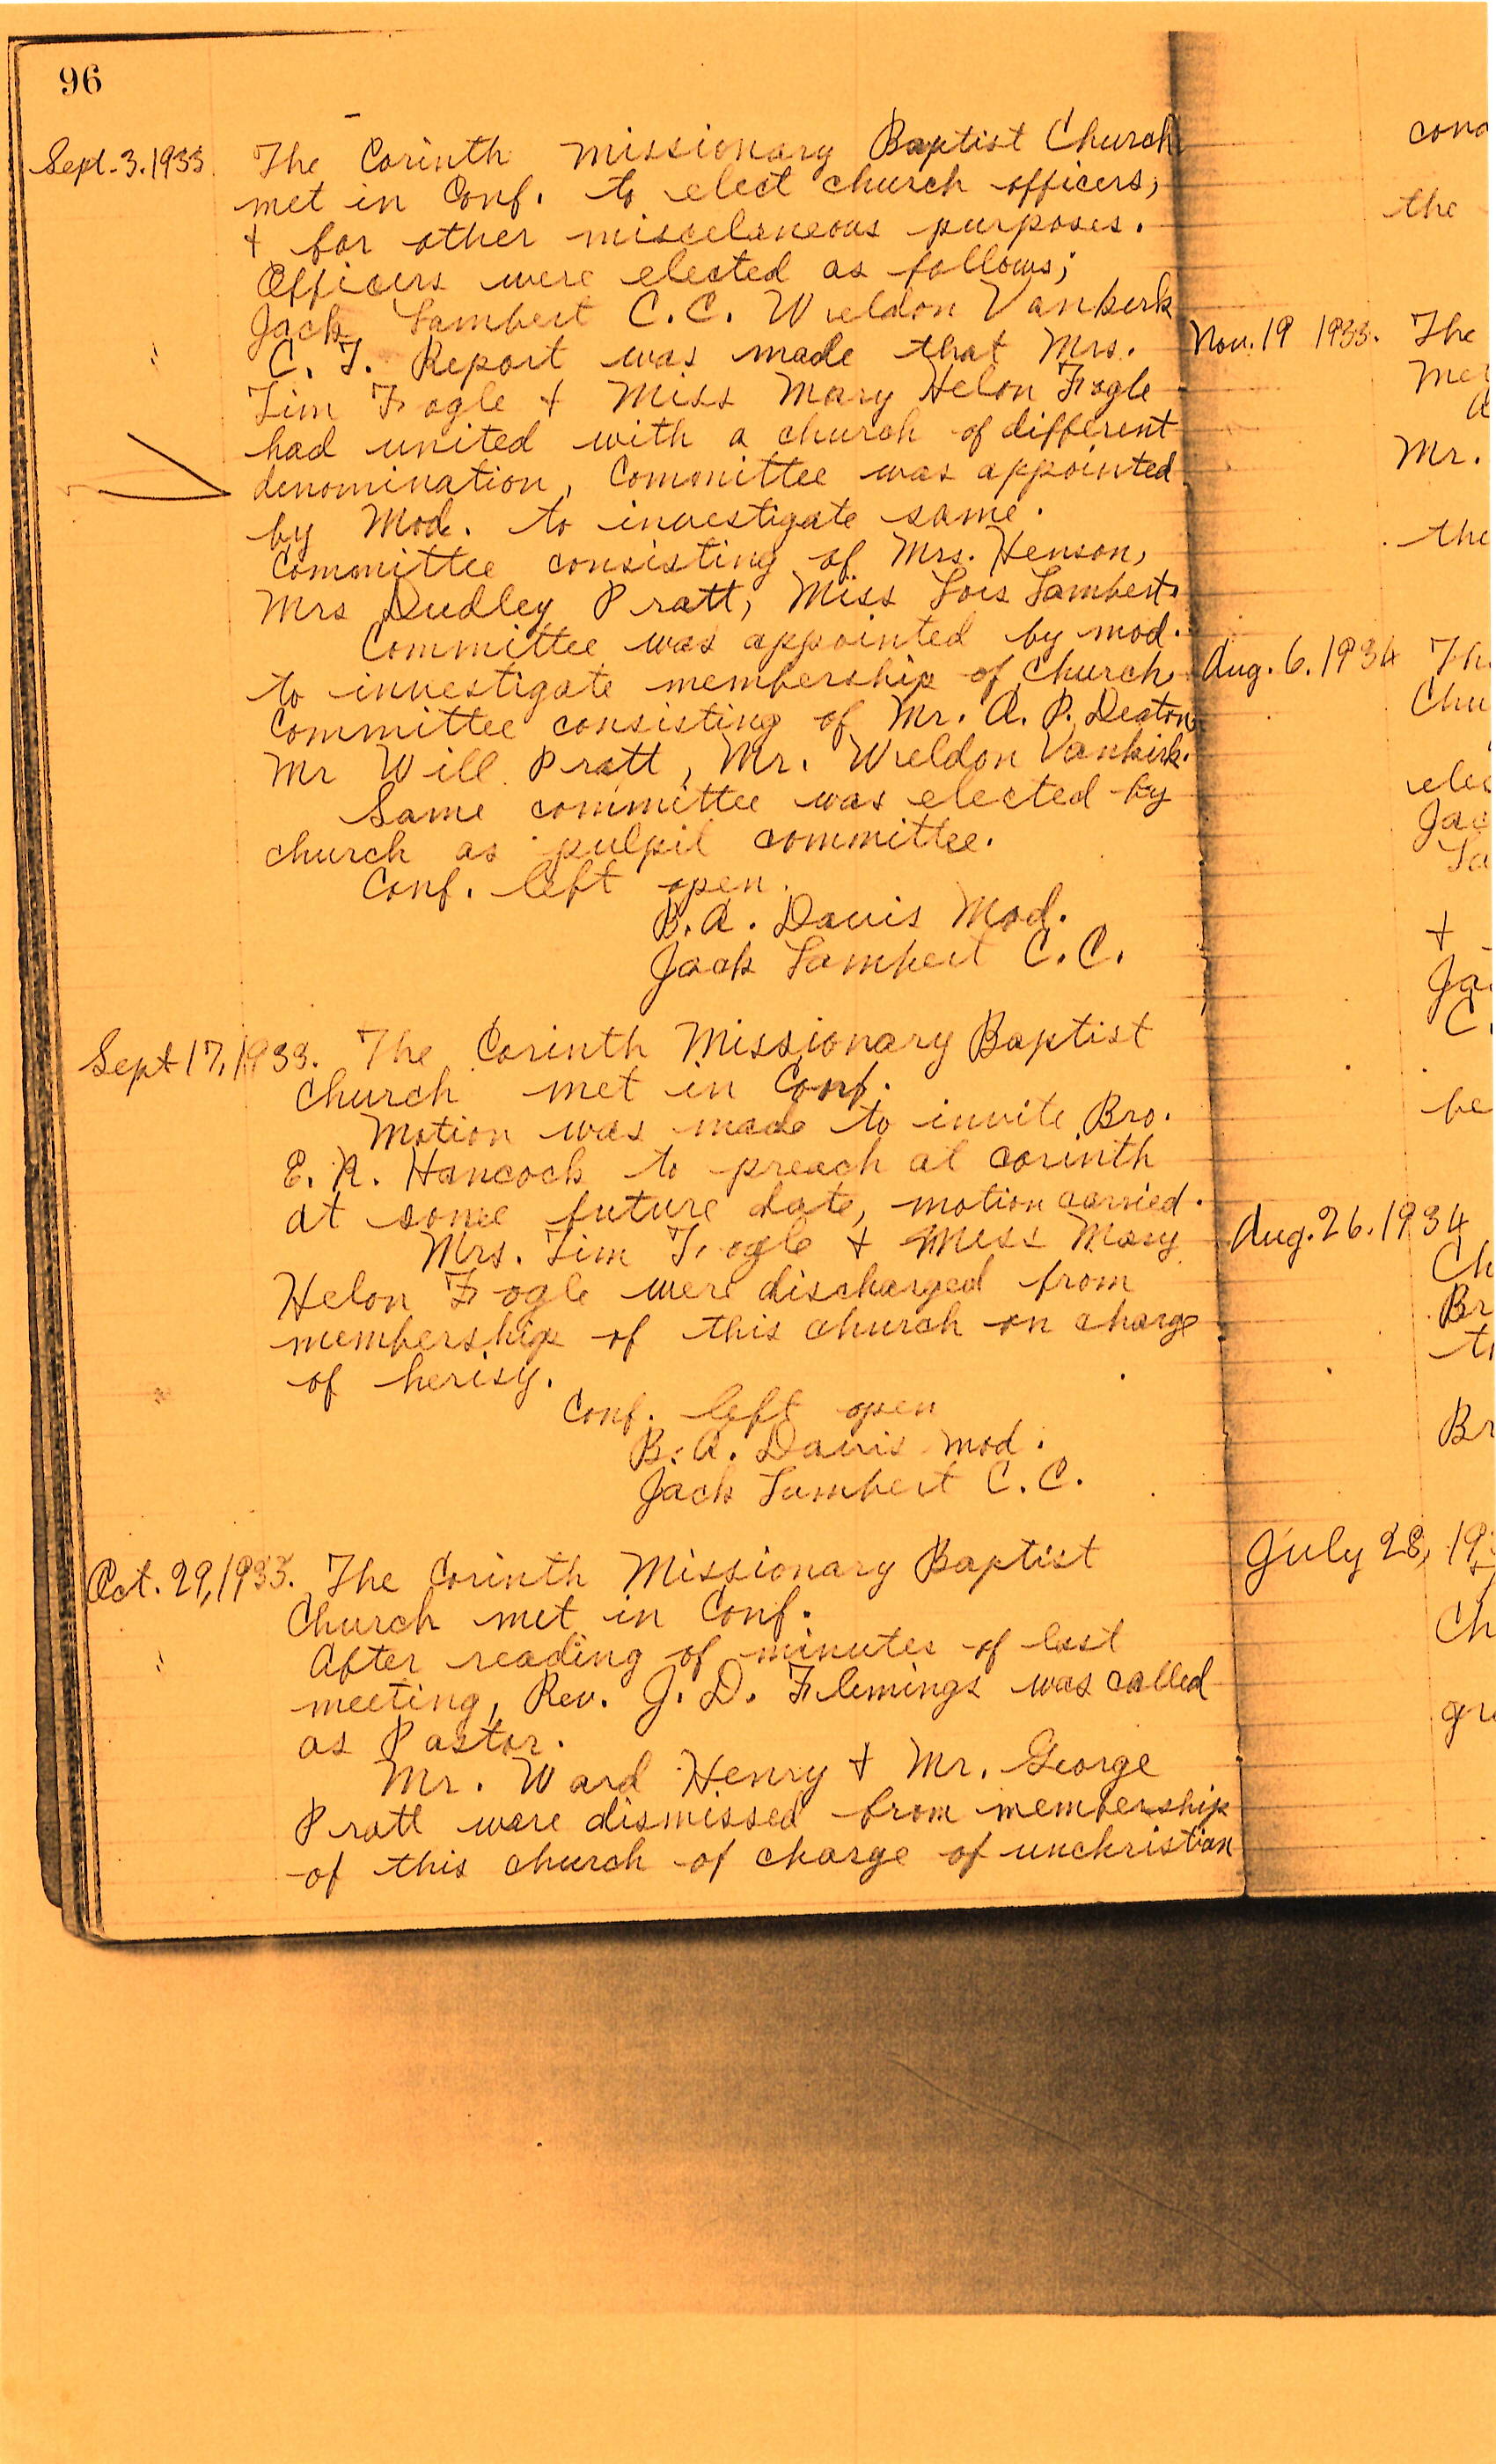 96
Sept. 3. 1933
The Corinth Missionary Baptist Church
met in Conf. to elect church officers,
+ for other miscelaneous purposes.
Officers were elected as follows;
Jack Lambert C.C. Weldon Vankirk
C. T. Report was made that Mrs.
Tim Fogle + Miss Mary Helon Fogle
had united with a church of different
denomination, Committee was appointed
by Mod. to investigate same.
Committee consisting of Mrs. Henson,
Mrs Dudley Pratt, Miss Lois Lambert.
Committee was appointed by mod.
to investigate membership of Church.
Committee consisting of Mr. A. P. Deaton
Mr Will Pratt, Mr. Weldon Vankirk.
Same committee was elected by
church as pulpit committee.
Conf. left open.
B. A. Davis Mod.
Jack Lambert C.C.
Sept 17, 1933. The Corinth Missionary Baptist
Church met in Conf.
Motion was made to invite Bro.
E. R. Hancock to preach at Corinth
at some future date, motion carried.
Mrs. Tim Fogle + Miss Mary
Helon Fogle were discharged from
membership of this church on charge
of herisy.
Conf. left open
B. A. Davis Mod.
Jack Lambert C.C.
Oct. 29, 1933. The Corinth Missionary Baptist
Church met in Conf.
After reading of minutes of last
meeting, Rev. J. D. Flemings was called
as Pastor.
Mr. Ward Henry + Mr. George
Pratt were dismissed from membership
of this church of charge of unchristian
the
Nov. 19 1933. The
Mr.
the
Aug. 6. 1934
+
be
Aug. 26. 1934
Br
Br
July 28, 19